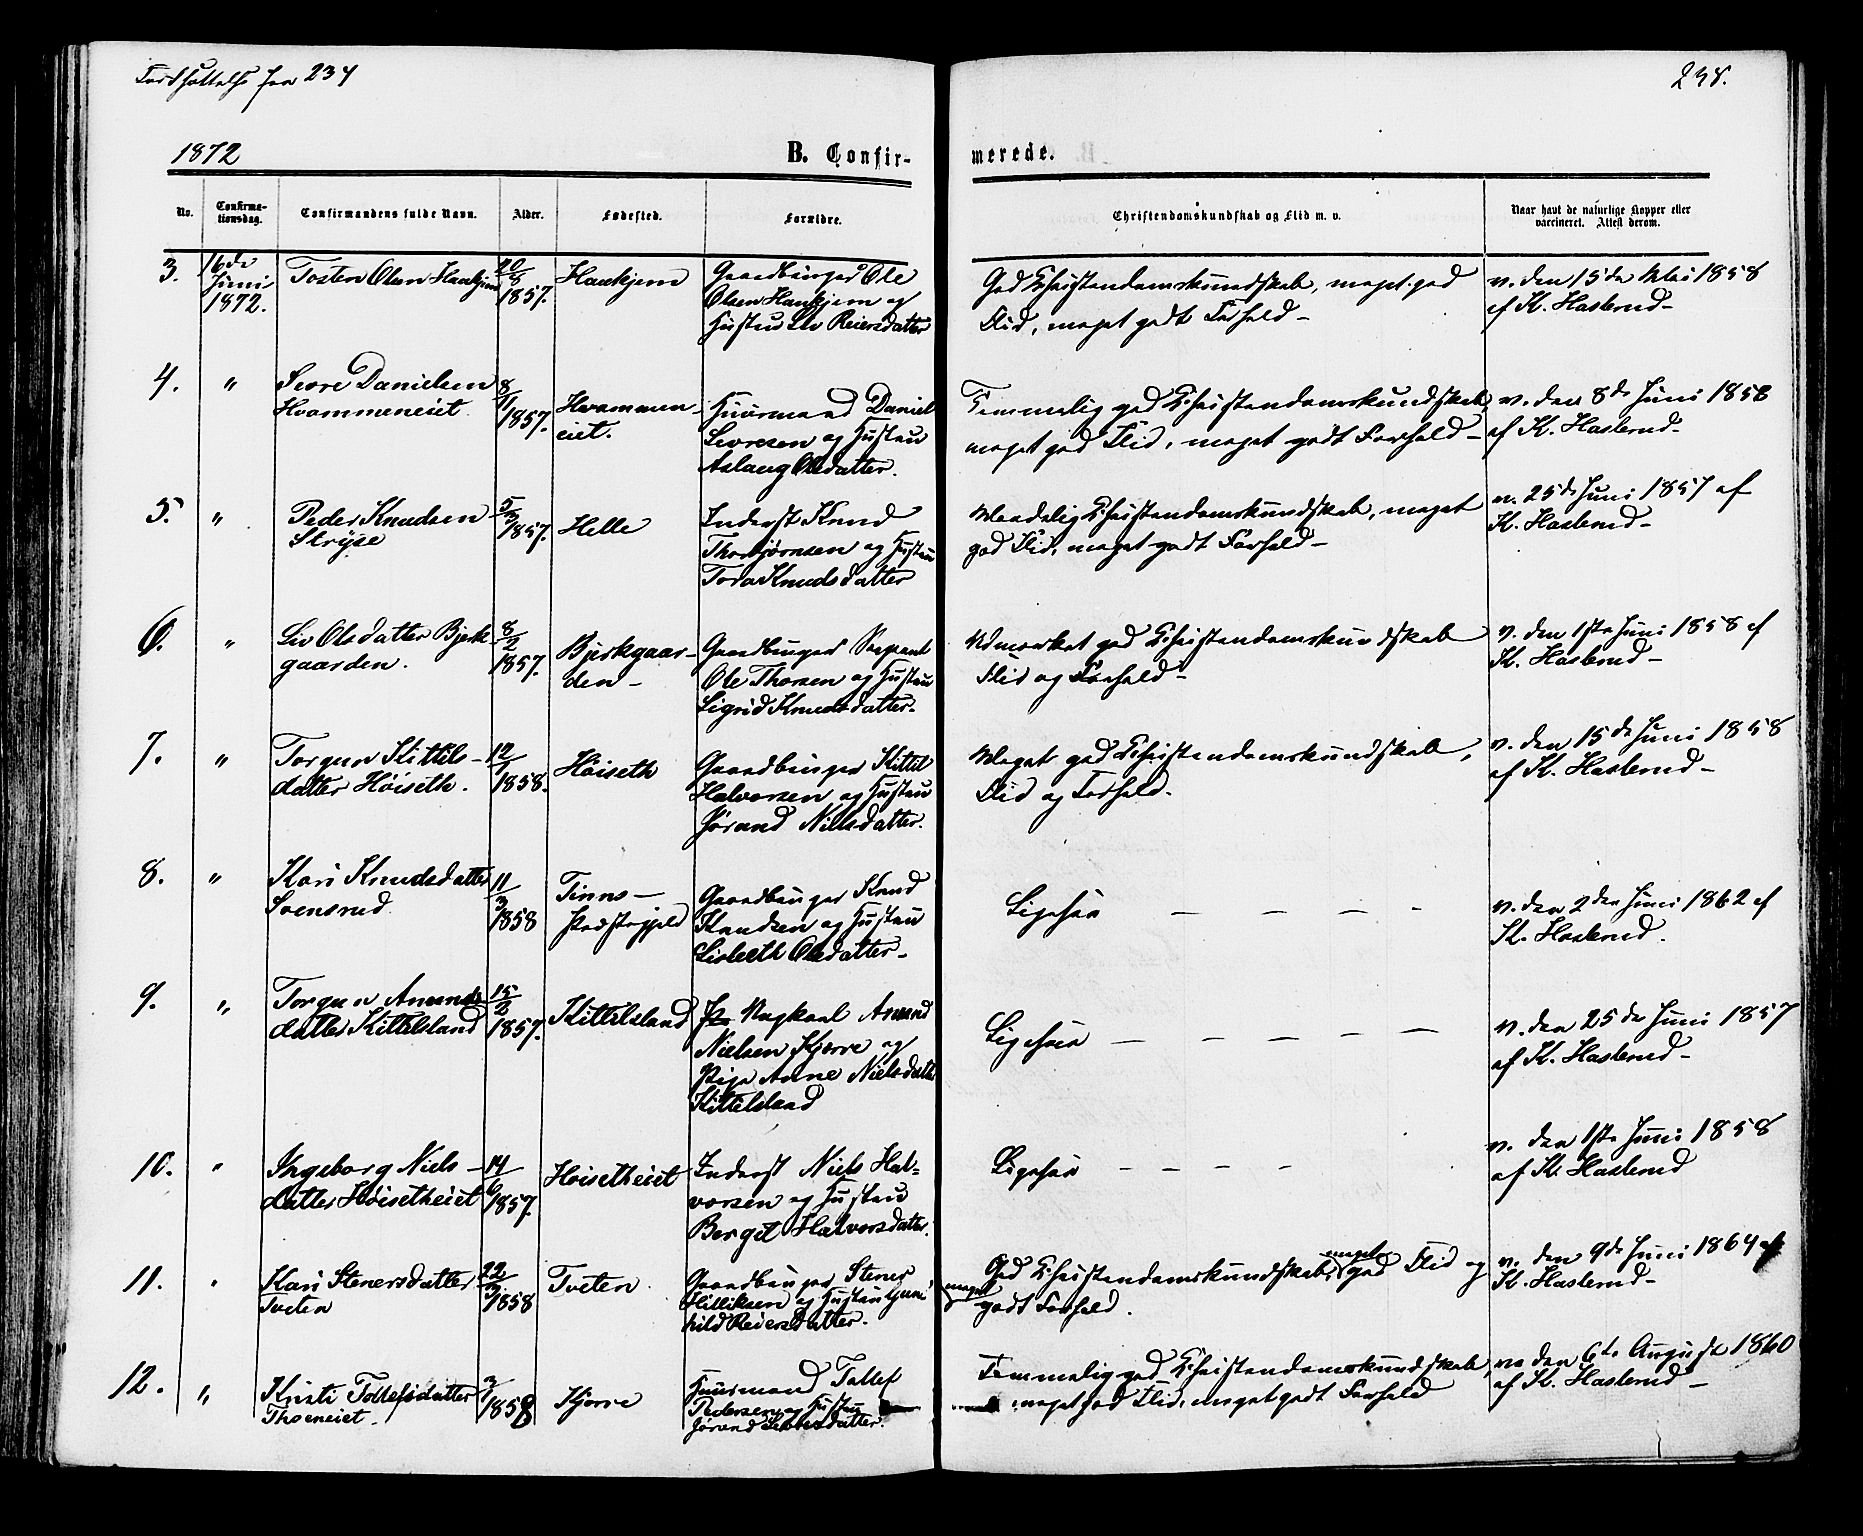 Fortsættelse fra 234
238.
1872
B. Confir-
merede.
No.
Confirma-
tionsdag.
Confirmandens fulde Navn.
Alder.
Fødested.
Forældre.
Christendomskundskab og Flid m. v.
Naar havt de naturlige Kopper eller
vaccineret. Attest derom.
3.
16de
Juni
1872.
Tosten Olsen Haukjem
20/8
1857.
Haukjem
Gaardbruger Ole
Olsen Haukjem og
Hustru Liv Reiersdatter
God Christendomskundskab, meget god
Flid, meget godt Forhold –
v. den 15de Mai 1858
af K. Haslerud –
4.
"
Sevre Danielsen
Hvammeneiet.
8/11
1857.
Hvammen-
eiet.
Huusmand Daniel
Sevresen og Hustru
Aslaug Olsdatter.
Temmelig god Christendomskundskab,
meget god Flid, meget godt Forhold –
v. den 8de Juni 1858
af K. Haslerud –
5.
"
Peder Knudsen
1857.
Helle
Inderst Knud
Thorbjørnsen og Hustru
Tora Knudsdatter
Maadelig Christendomskundskab, meget
god Flid, meget godt Forhold –
v. 25de Juni 1857 af
K. Haslerud –
6.
"
Liv Olsdatter Bjerk
gaarden.
8/2
1857.
Bjerkgaar-
den –
Gaardbruger Sergeant
Ole Thorsen og Hustru
Sigrid Knudsdatter.
Udmærket god Christendomskundskab
Flid og Forhold –
v. den 1ste Juni 1858 af
K. Haslerud –
7.
"
Torgun Kittils-
datter Høiseth.
12/1
1858.
Høiseth
Gaardbruger Kittil
Halvorsen og Hustru
Jørand Nielsdatter.
Meget god Christendomskundskab,
Flid og Forhold.
v. den 15de Juni 1858
af K. Haslerud –
8.
"
Kari Knudsdatter
Svensrud.
11/3
1858
Tinns –
Præstegjeld
Gaardbruger Knud
Knudsen og Hustru
Lisbeth Olsdatter –
Ligesaa – – – –
v. den 2den Juni 1862 af
K. Haslerud.
9.
"
Torgun Amunds
datter Kittilsland
15/2
1857.
Kittilsland
Ungkarl Amund
Nielsen Kjørve og
Pige Anne Nielsdatter
Kittilsland
Ligesaa – – – –
v. den 25de Juni 1857
af K. Haslerud –
10.
"
Ingeborg Niels –
datter Høisetheiet
14/6
1857.
Høisetheiet
Inderst Niels Hal-
vorsen og Hustru
Bergit Halvorsdatter.
Ligesaa – – – –
v. den 1ste Juni 1858
af K. Haslerud
11.
"
Kari Stenersdatter
Tveten
22/3
1858
Tveten.
Gaardbruger Stener
og Hustru Gun
hild Reiersdatter.
God Christendomskundskab, meget god Flid og
meget godt Forhold.
v. den 9de Juni 1864 af
K. Haslerud –
12.
"
Kirsti Tollefsdatter
1858
Kjørve
Huusmand Tollef
Pedersen og Hustru
Jørand
Temmelig god Christendomskundskab,
meget god Flid, meget godt Forhold
den 6te August 1860
af K. Haslerud –